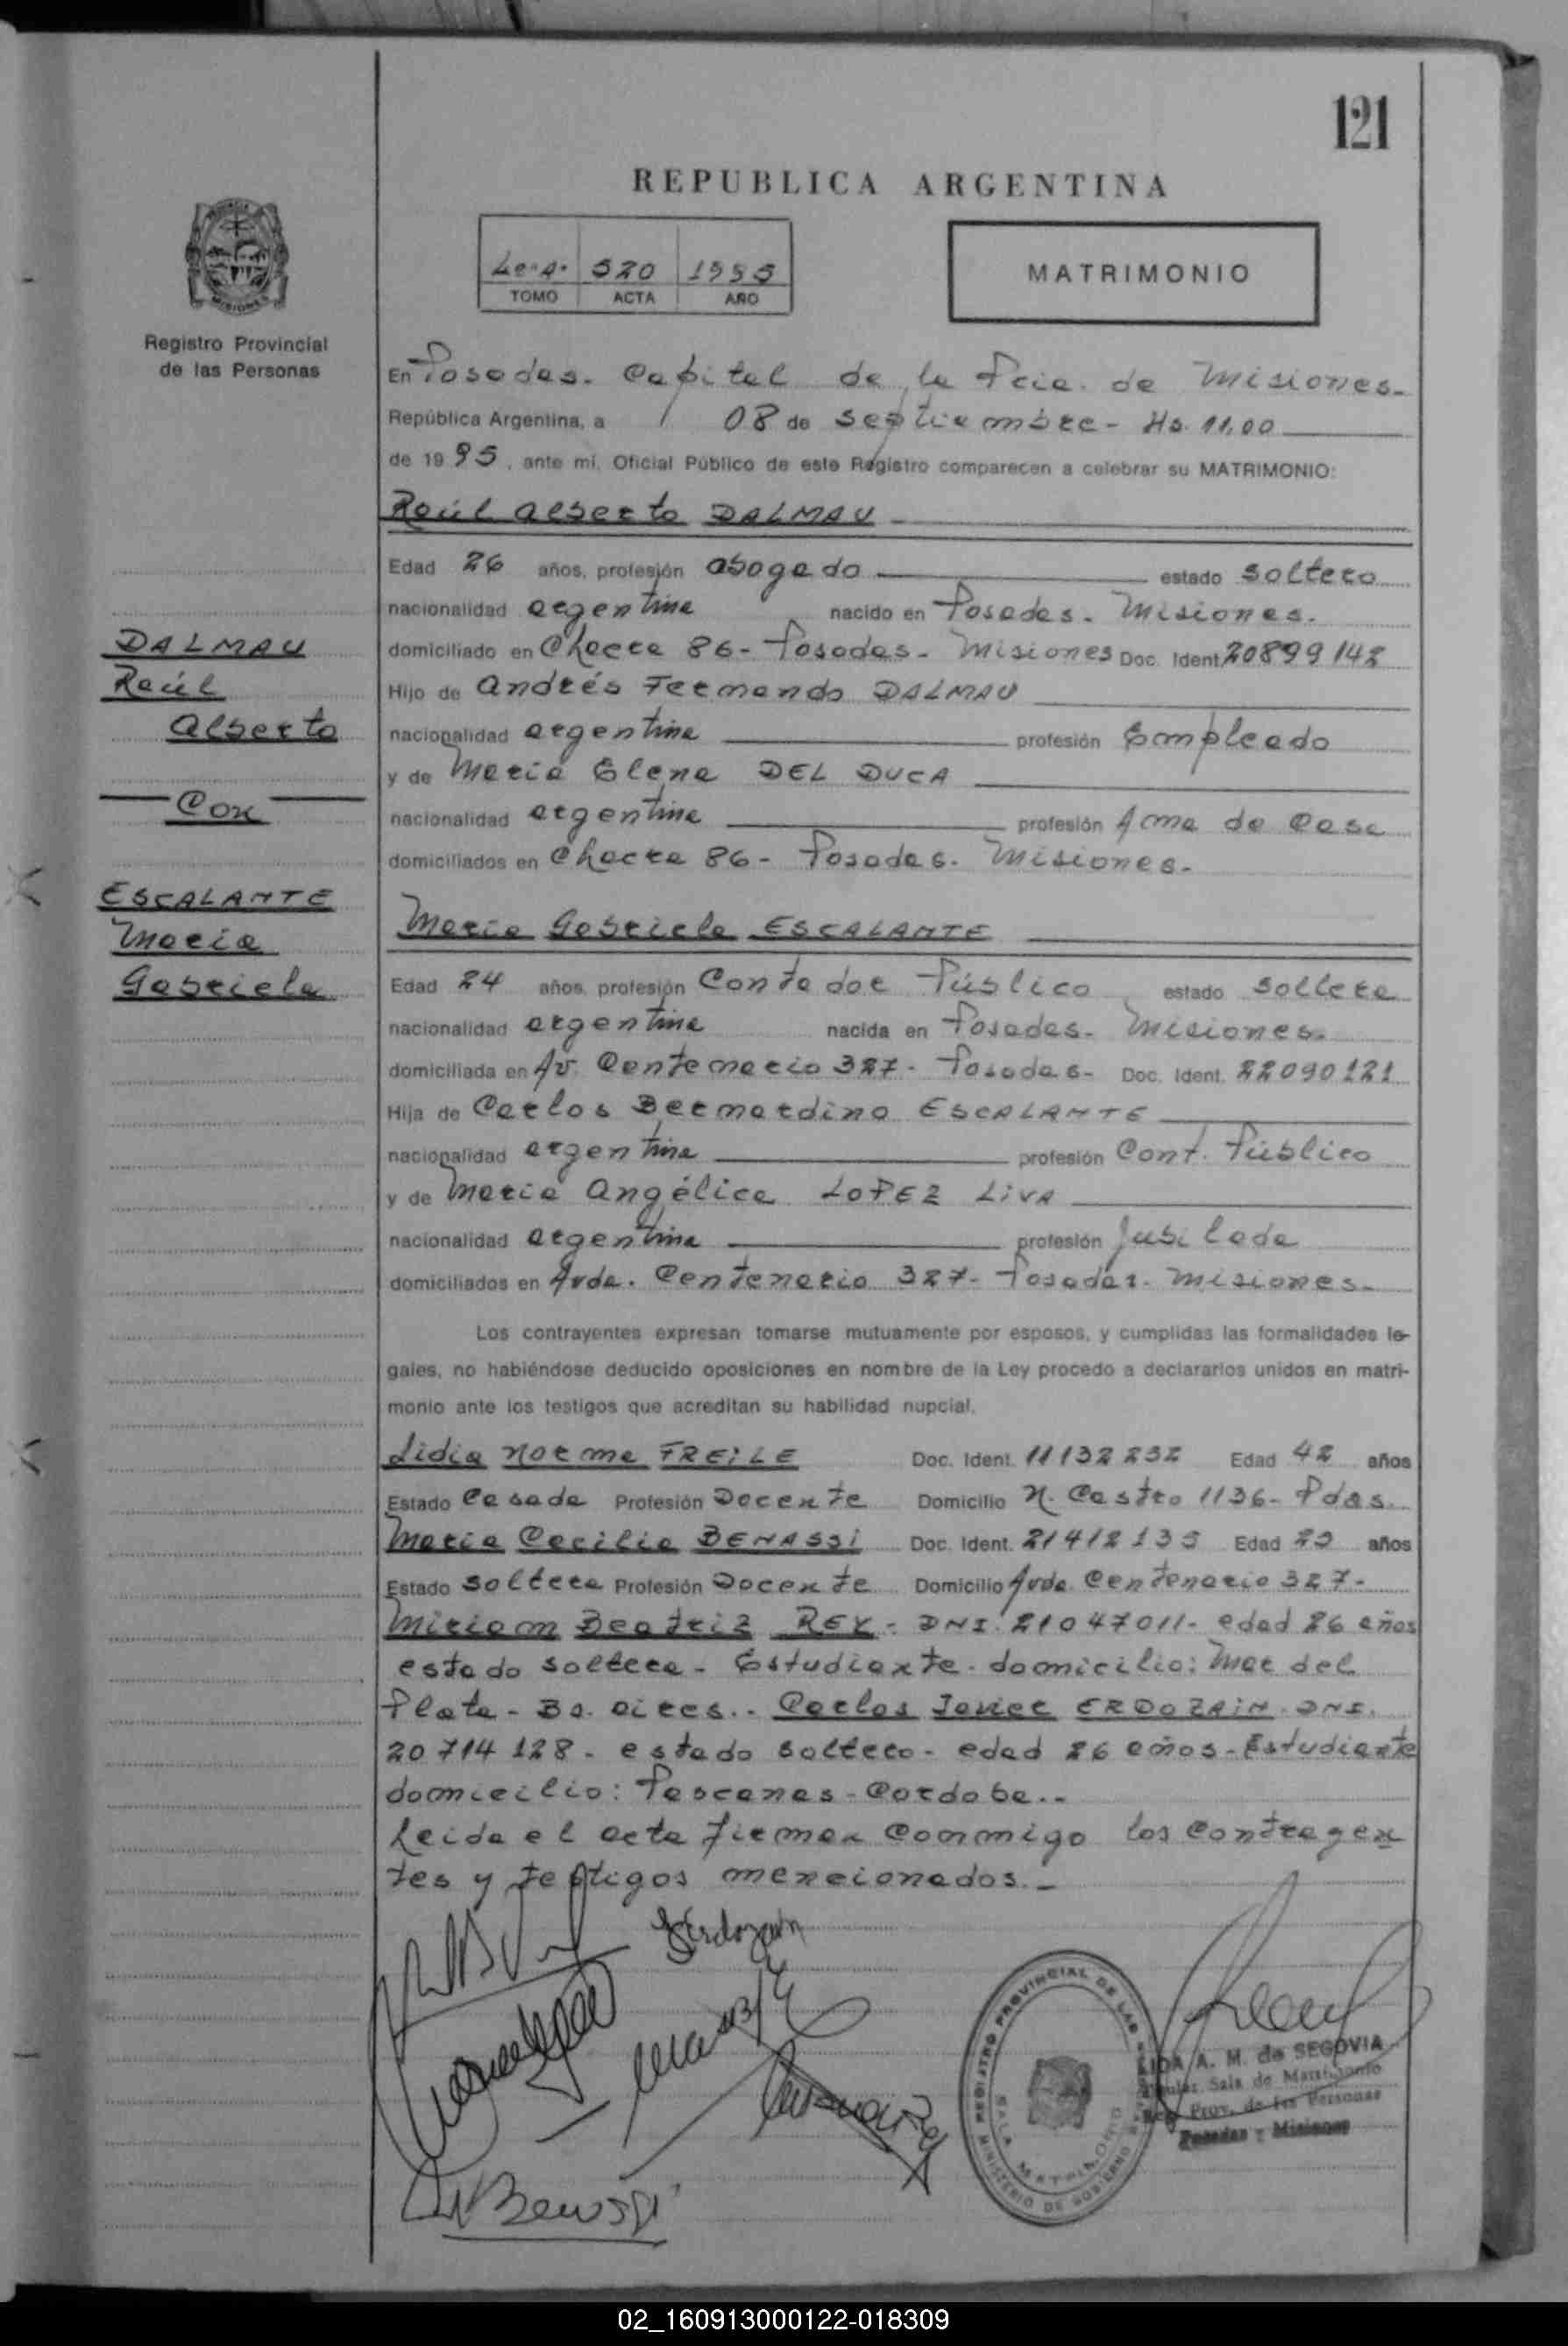 121
REPUBLICA ARGENTINA
520 1995
TOMO ACTA AÑO
MATRIMONIO
Registro Provincial
de las Personas
En Posadas. Capital de la Pcia. de Misiones.
República Argentina, a 08 de septiembre - Hs. 11,00
de 1995, ante mi, Oficial Público de este Registro comparecen a celebrar su MATRIMONIO:
Raúl Alberto DALMAU
Edad 26 años, profesión abogado estado soltero
nacionalidad argentina nacido en Posadas. Misiones.
domiciliado en Chacra 86- Posadas- Misiones Doc. Ident. 20899142
Hijo de Andrés Fernando DALMAU
nacionalidad argentina profesión Empleado
y de María Elena DEL DUCA
nacionalidad argentina profesión Ama de Casa
domiciliados en Chacra 86- Posadas. Misiones.
DALMAU
Raúl
Alberto
Con
ESCALANTE
María
Gabriela
María Gabriela ESCALANTE
Edad 24 años, profesión Contador Público estado soltera
nacionalidad argentina nacida en Posadas- Misiones.
domiciliada en Av. Centenario 327- Posadas- Doc. Ident. 22090121
Hija de Carlos Bernardino ESCALANTE
nacionalidad argentina profesión Cont. Público
y de María Angélica LOPEZ LIVA
nacionalidad argentina profesión Jubilada
domiciliados en Avda. Centenario 327- Posadas. Misiones-
Los contrayentes expresan tomarse mutuamente por esposos, y cumplidas las formalidades le-
gales, no habiéndose deducido oposiciones en nombre de la Ley procedo a declararlos unidos en matri-
monio ante los testigos que acreditan su habilidad nupcial.
Lidia Norma FREiLE Doc. Ident. 11132232 Edad 42 años
Estado Casada Profesión Docente Domicilio N. Castro 1136- Pdas.
María Cecilia BENASSi Doc. Ident. 21412135 Edad años
Estado soltera Profesión Docente Domicilio Avda. Centenario 327-
Miriam Beatriz REY- DNI. 21047011- edad 26 años
estado soltera- Estudiante- domicilio: Mar del
Plata- Bs. aires.. Carlos Javier ERDOZAiN- DNI.
20714128- estado soltero- edad 26 años- Estudiante
domicilio: Pascanas- Cordoba..
Leida el acta firman conmigo los contrayen
tes y testigos mencionados.-
REGISTRO PROVINCIAL DE LAS PERSONAS
SALA MATRIMONIO
MINISTERIO DE GOBIERNO
A. M. de SEGOVIA
Sala de Matrimonio
Reg. Prov. de las Personas
Posadas - Misiones
02_160913000122-018309